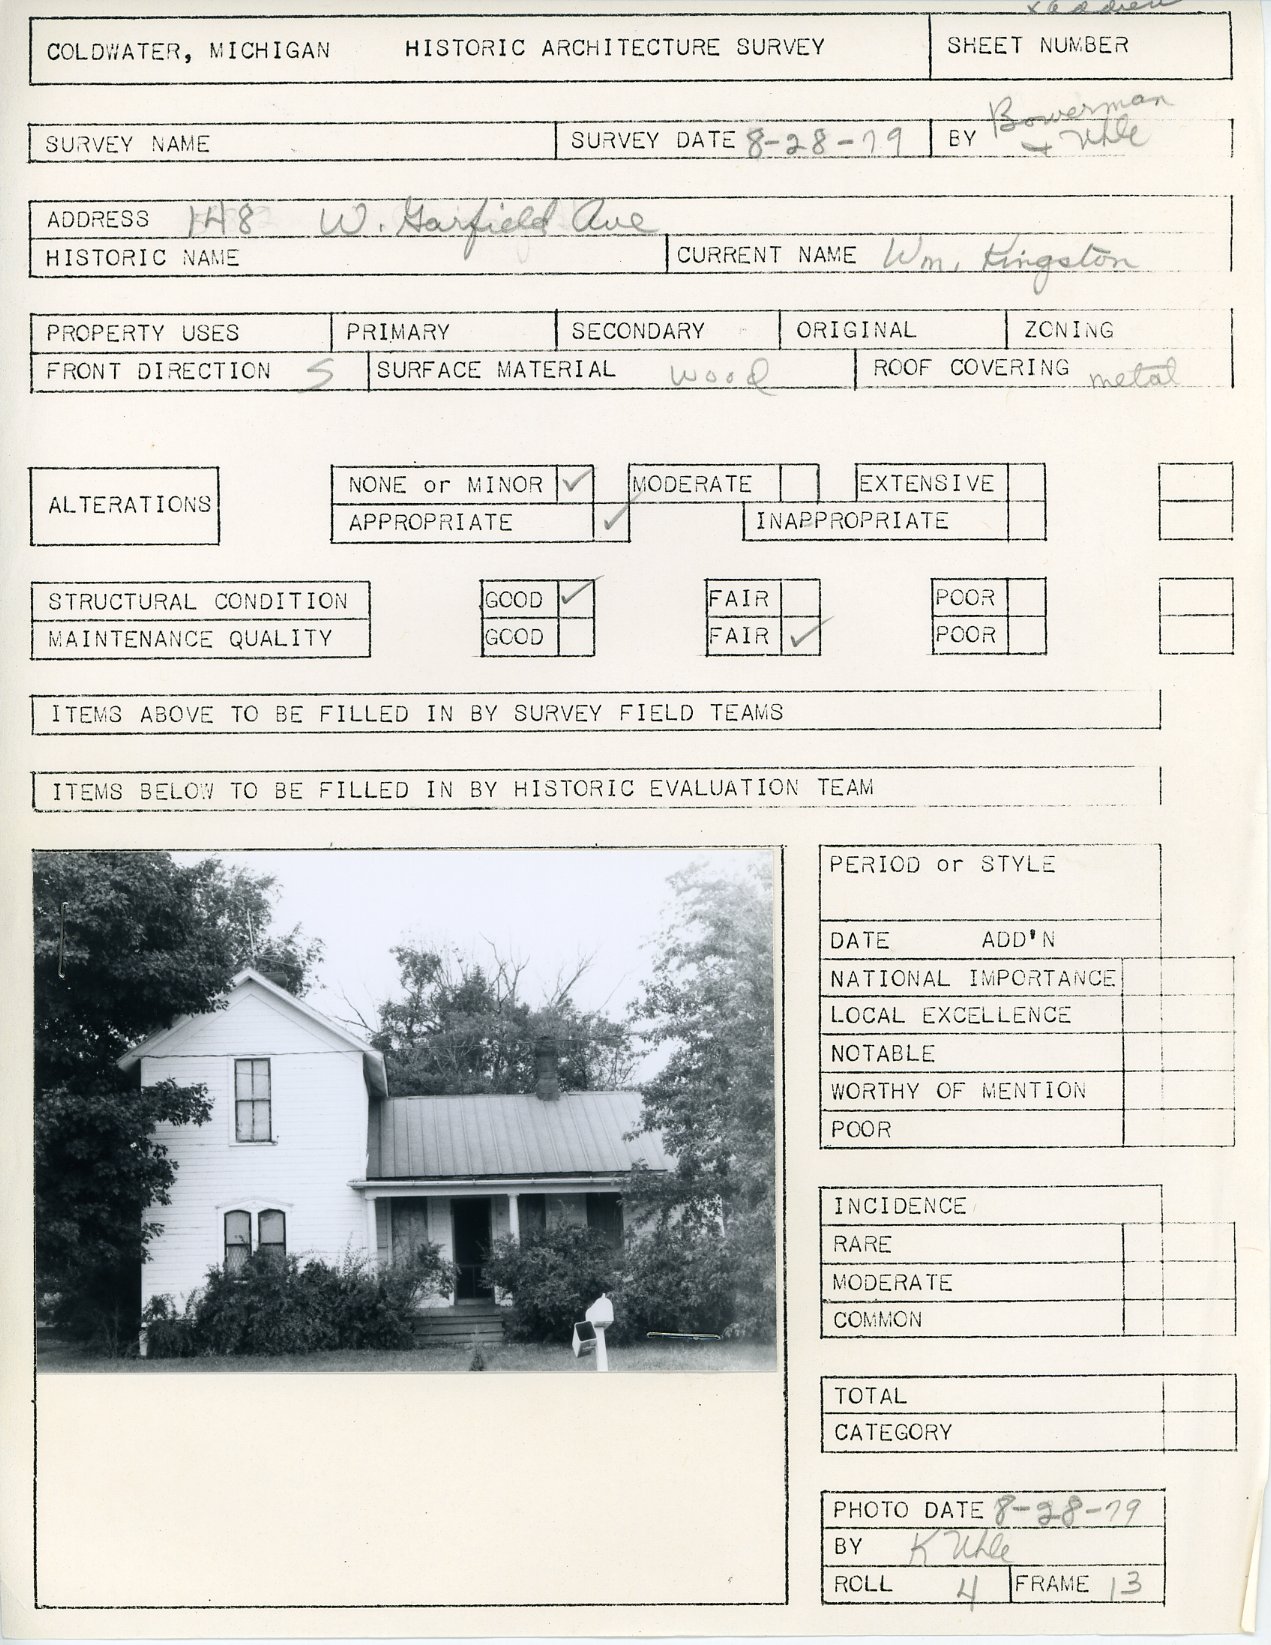 x address
COLDWATER, MICHIGAN HISTORIC ARCHITECTURE SURVEY SHEET NUMBER
SURVEY NAME SURVEY DATE 8-28-79 BY Bowerman
+ Uhle
ADDRESS 148 W. Garfield Ave
HISTORIC NAME CURRENT NAME Wm. Kingston
PROPERTY USES PRIMARY SECONDARY ORIGINAL ZONING
FRONT DIRECTION S SURFACE MATERIAL wood ROOF COVERING metal
ALTERATIONS NONE or MINOR ✓ MODERATE EXTENSIVE
APPROPRIATE ✓ INAPPROPRIATE
STRUCTURAL CONDITION GOOD ✓ FAIR POOR
MAINTENANCE QUALITY GOOD FAIR ✓ POOR
ITEMS ABOVE TO BE FILLED IN BY SURVEY FIELD TEAMS
ITEMS BELOW TO BE FILLED IN BY HISTORIC EVALUATION TEAM
PERIOD or STYLE
DATE ADD'N
NATIONAL IMPORTANCE
LOCAL EXCELLENCE
NOTABLE
WORTHY OF MENTION
POOR
INCIDENCE
RARE
MODERATE
COMMON
TOTAL
CATEGORY
PHOTO DATE 8-28-79
BY K Uhle
ROLL 4 FRAME 13